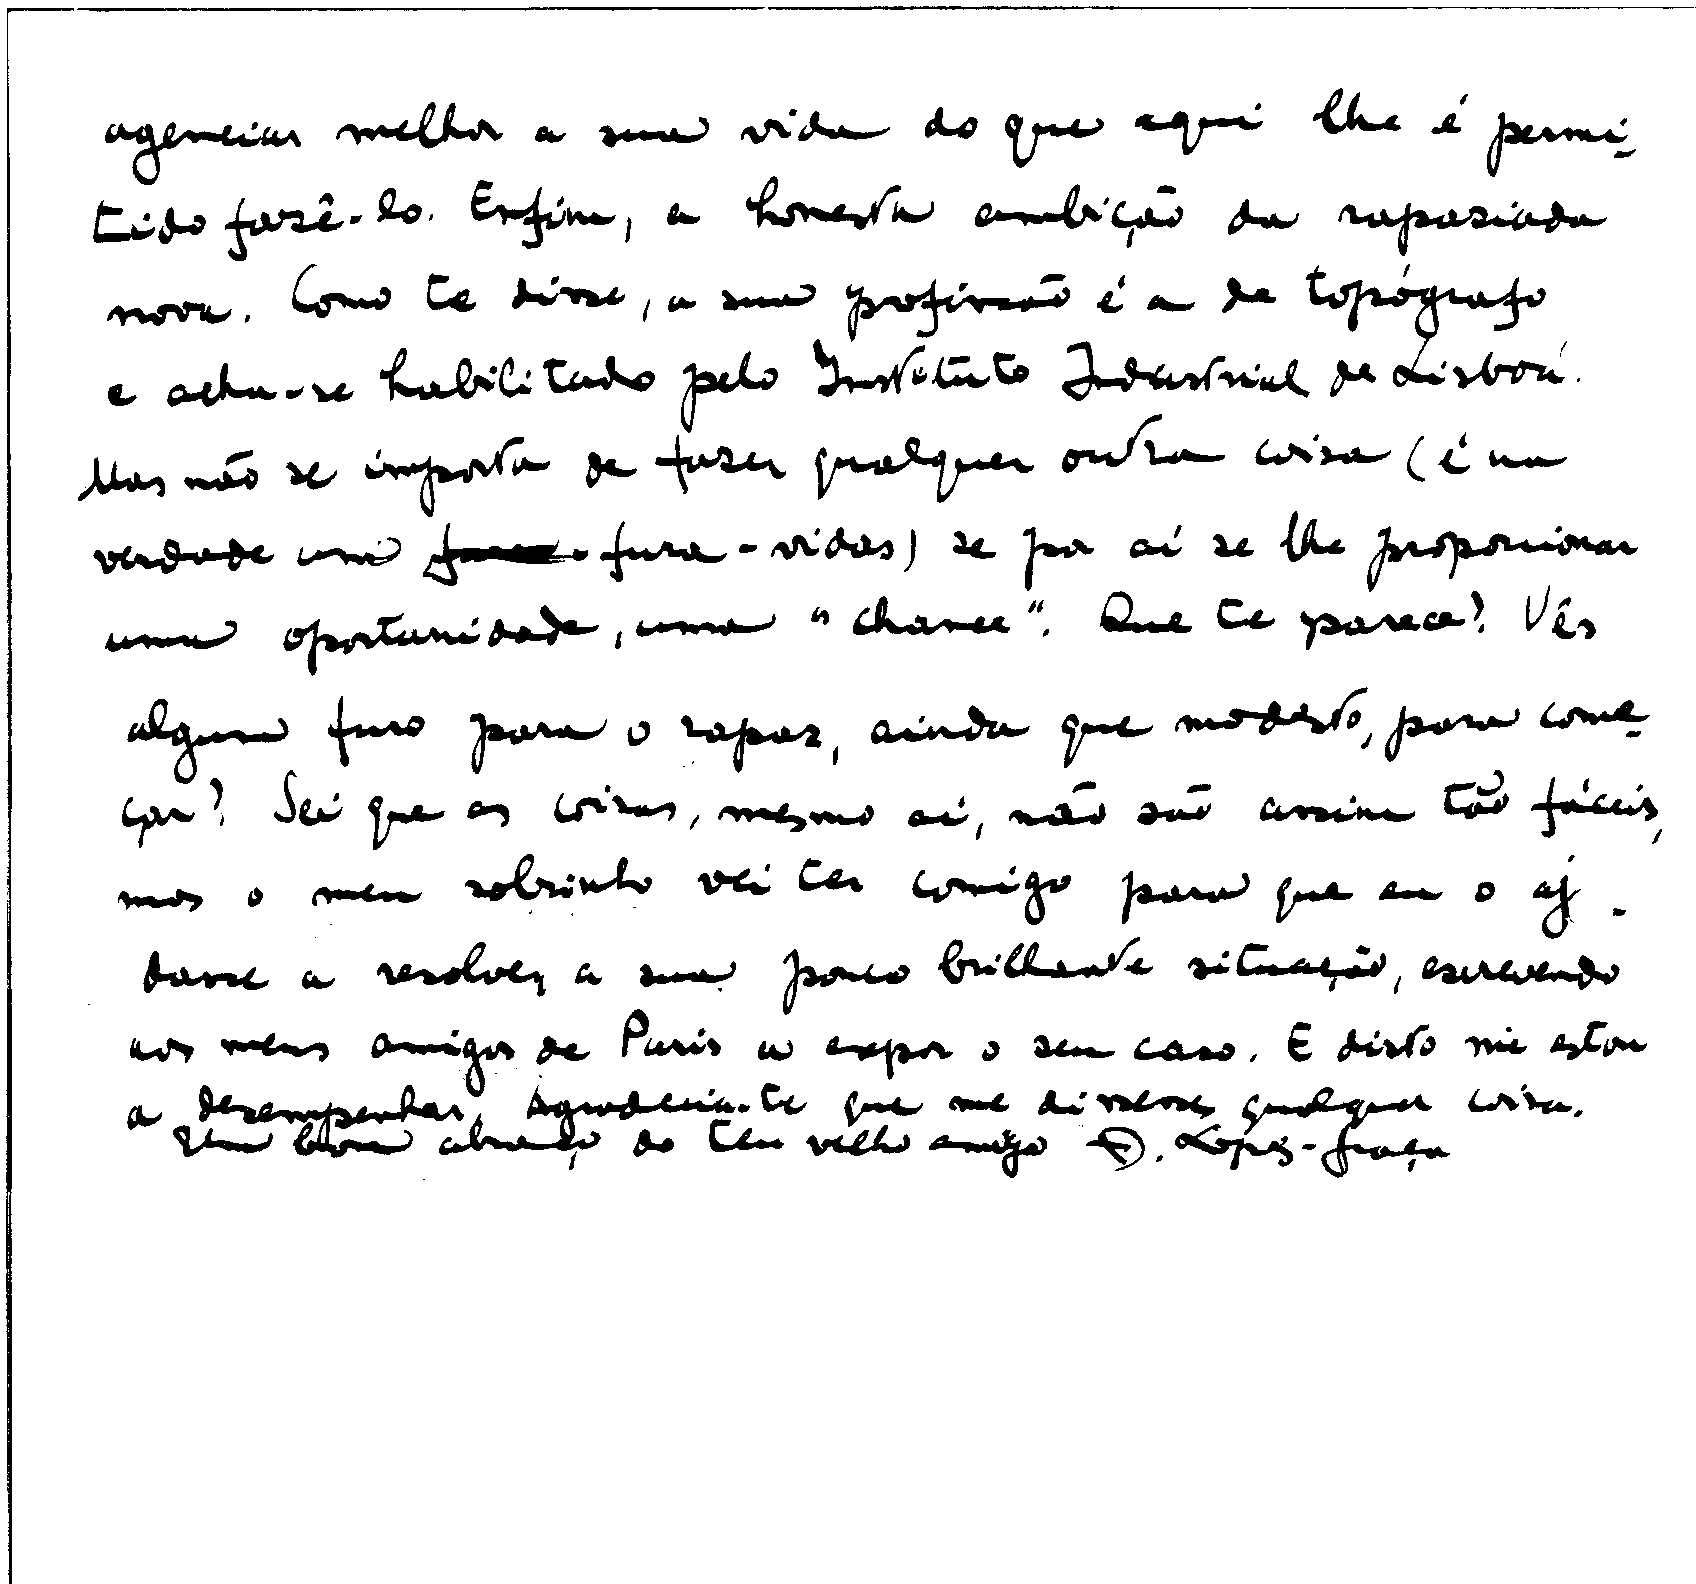 agenciar melhor a sua vida do que aqui lhe é permi-
tido fazê-lo. Enfim, a honesta ambição da rapaziada
nova. Como te disse, a sua profissão é a de topógrafo
e acha-se habilitado pelo Instituto Industrial de Lisboa.
Mas não se importa de fazer qualquer outra coisa (é na
verdade um fura-vidas) se por aí se lhe proporcionar
uma oportunidade, uma "chance". Que te parece? Vês
algum furo para o rapaz, ainda que modesto, para come-
çar? Sei que as coisas, mesmo aí, não são assim tão fáceis,
mas o meu sobrinho vei ter comigo para que eu o aj-
dasse a resolver a sua pouco brilhante situação, escrevendo
aos meus amigos de Paris a expor o seu caso. E disto me estou
a desempenhar. Agradecia-te que me dissesses qualquer coisa.
Um bom abraço do teu velho amigo F. Lopes-Graça